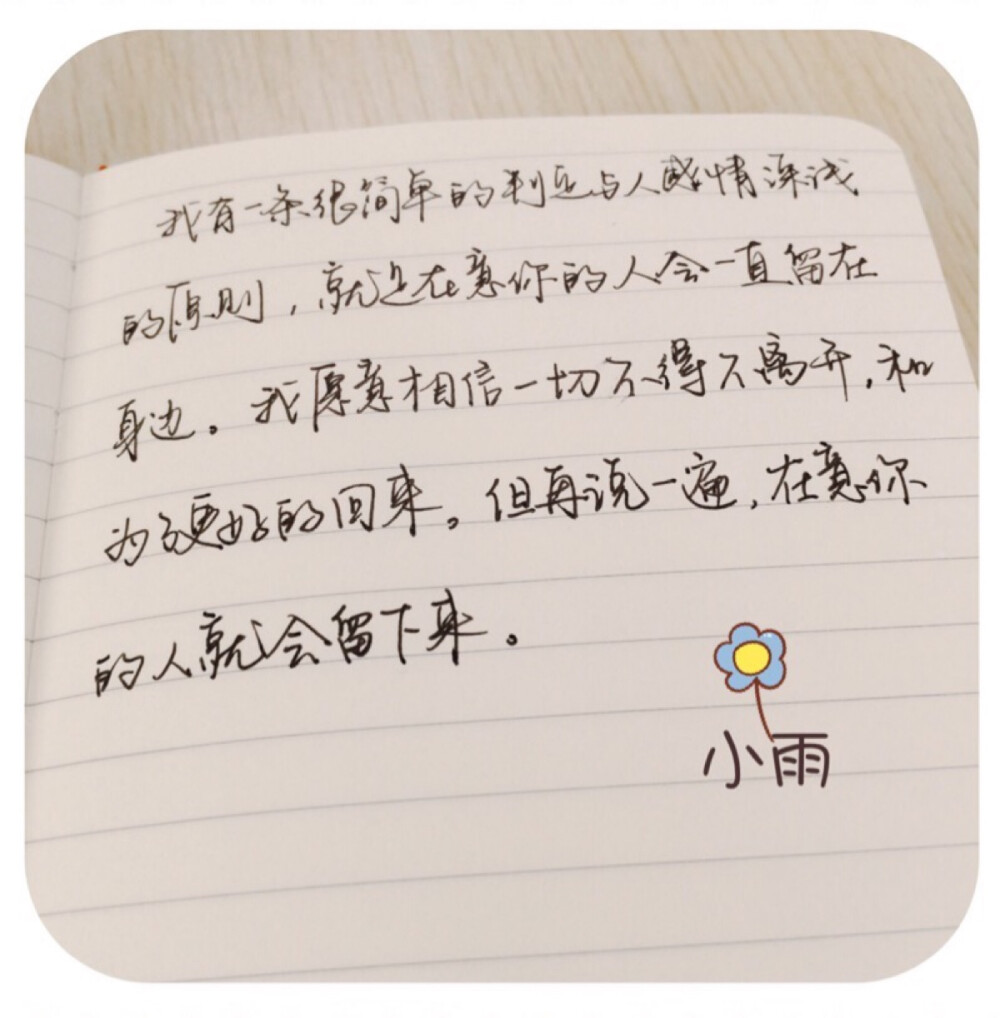 我有一条很简单的判定与人感情深浅
的原则，就是在意你的人会一直留在
身边。我愿意相信一切不得不离开，和
为了更好的回来。但再说一遍，在意你
的人就会留下来。
小雨